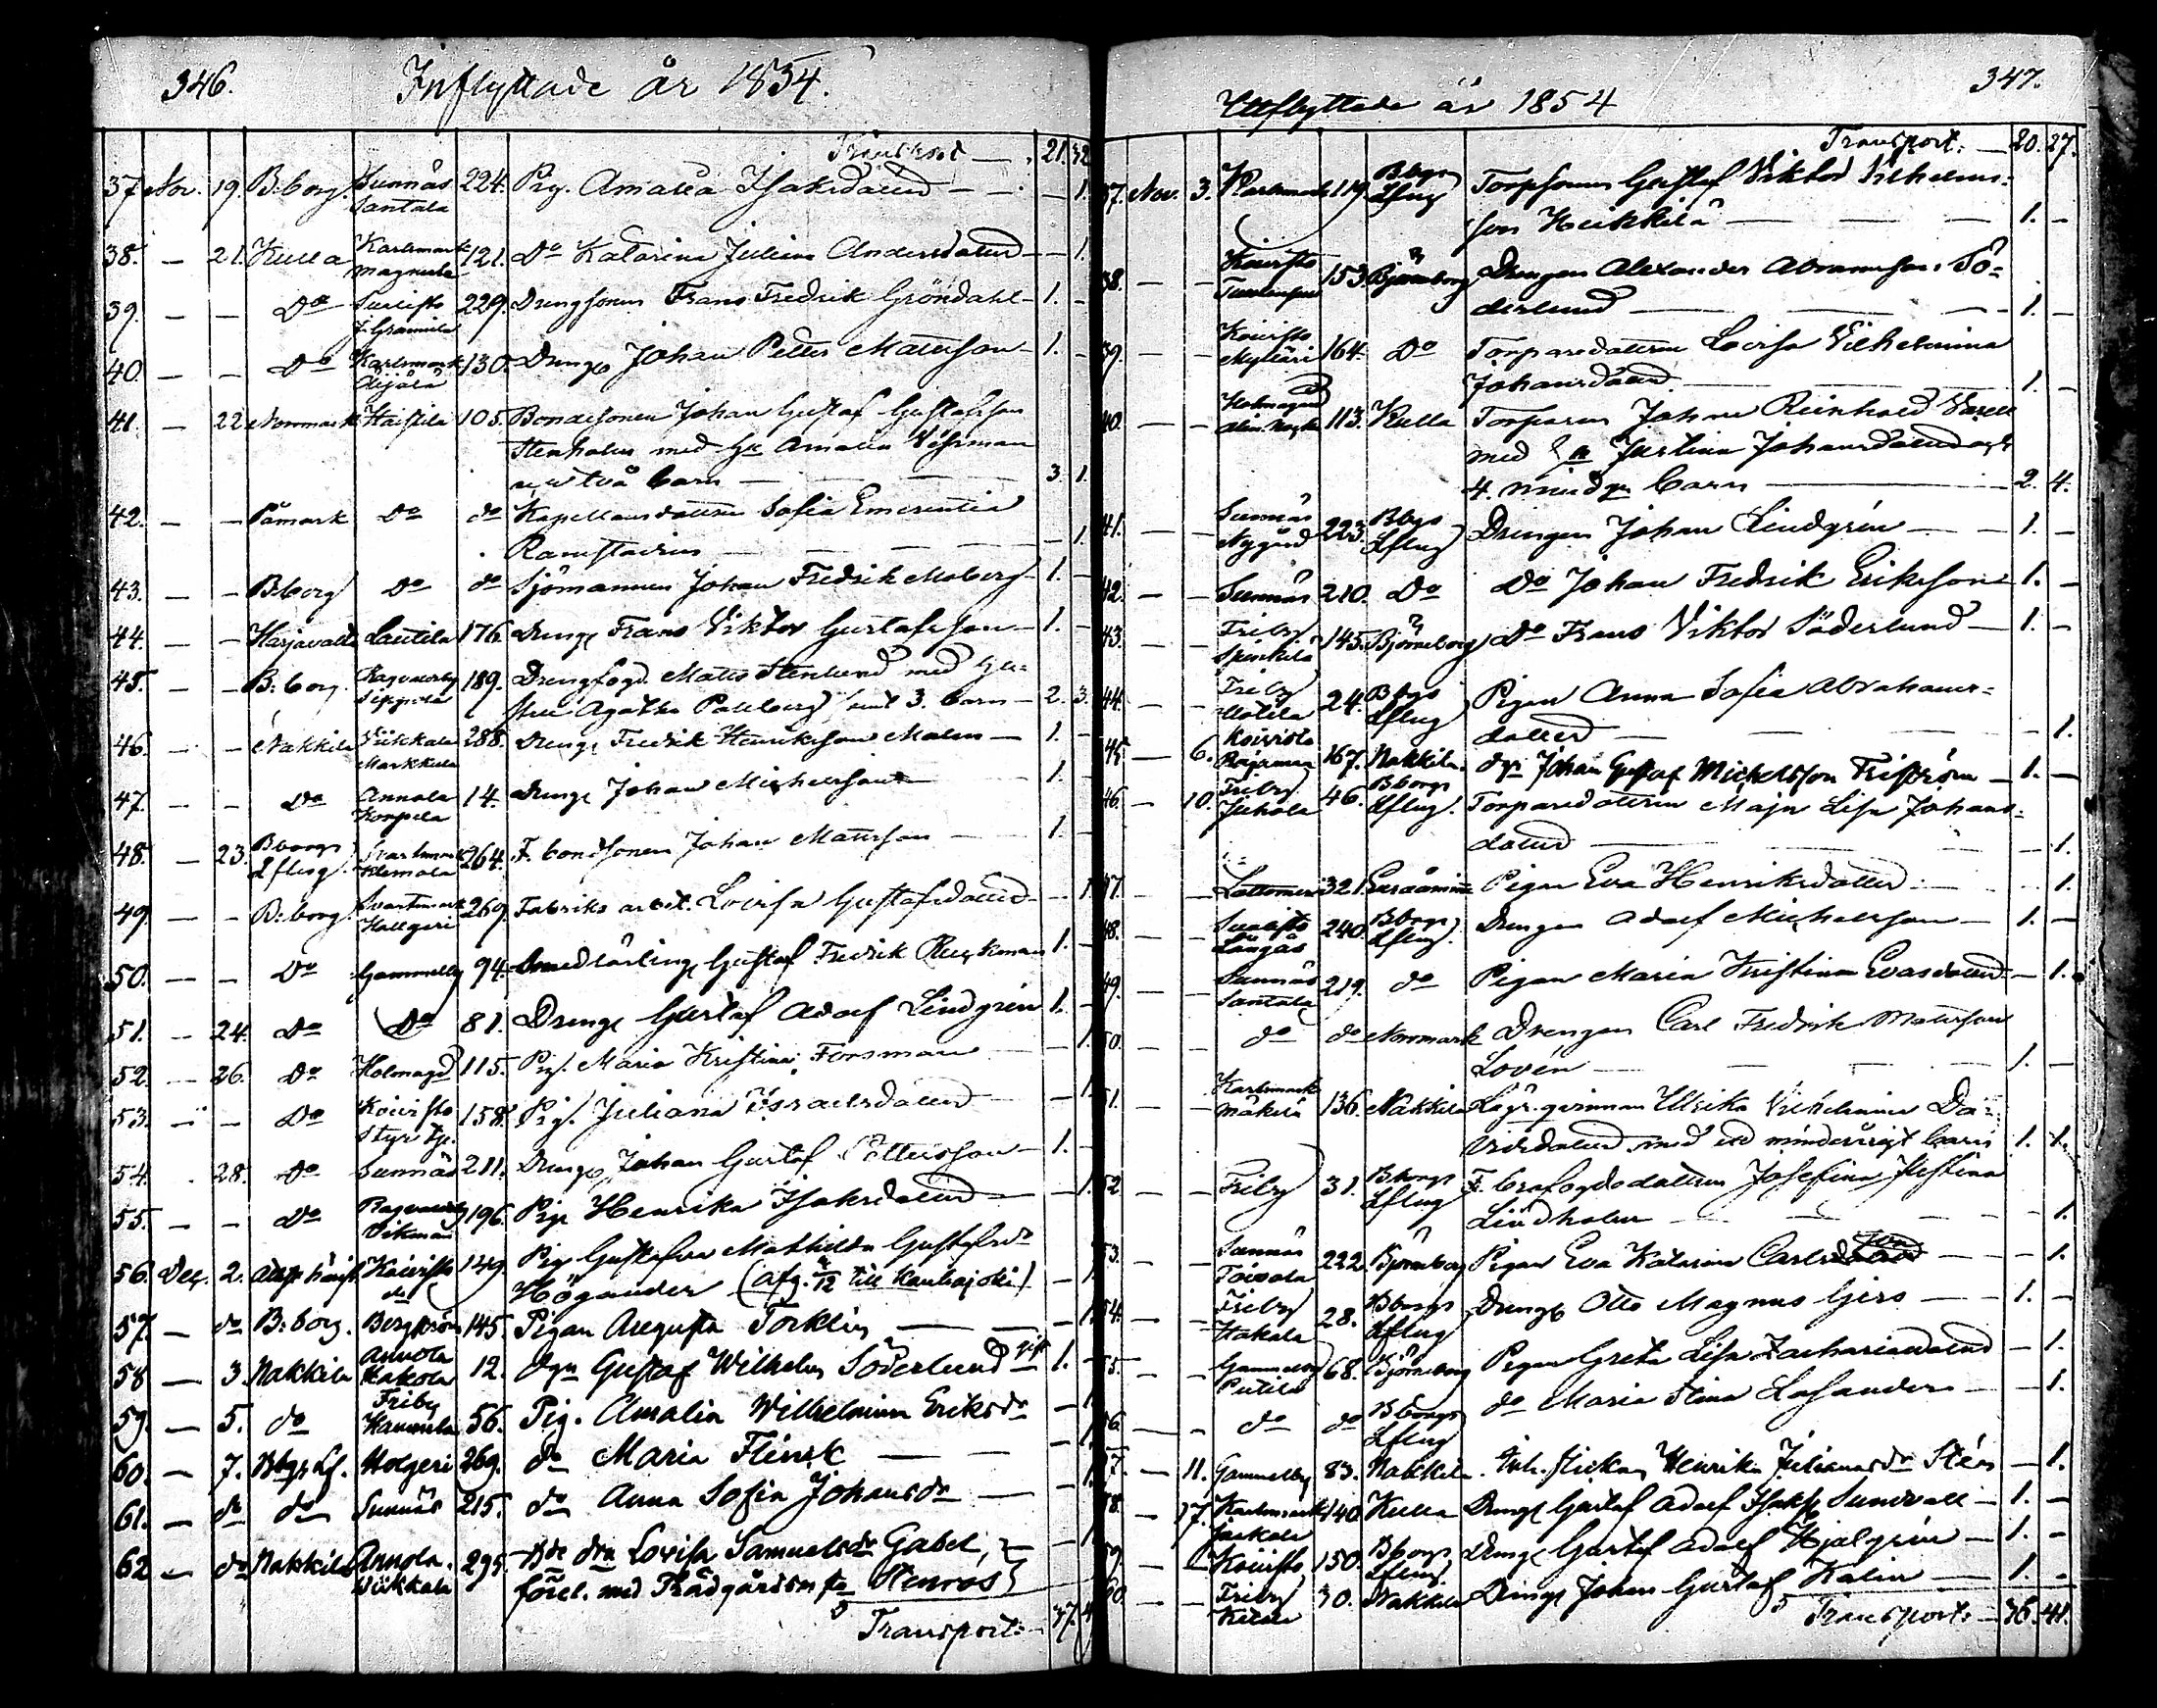 346.
Inflyttade år 1854.
Transport — 21. 32
37. Nov. 19. B:borg. Sunnäs Santala 224. Pig. Amalia Isaksdotter — 1.
38. — 21. Kulla Karlsmark Magnula 121. Do Katarina Juliana Andersdotter — 1.
39. — — Do Suristo 229. Drengsonen Frans Fredrik Gröndahl — 1. —
40. — — Do Karlsmark Äijälä 130. Dreng Johan Petter Mattsson — 1. —
41. — 22 Norrmark Haistila 105. Bondesonen Johan Gustaf Gustafsson
Stenholm med hu Amalia
två barn — 3. 1.
42. — — Påmark Do do Kapellansdottren Sofia Emerentia
— 1.
43. — — B:borg Do do Sjömannen Johan Fredrik Moberg — 1. —
44. — — Harjavalta Lautila 176. Dreng Frans Viktor Gustafsson — 1. —
45. — — B:borg. Ragvaldsby Seppälä 189. Drengfogd. Matts Stenlund med hu-
stru Agatha samt 3. barn — 2. 3.
46. — — Nakkila Viikkala Markkula 288. Dreng Fredrik Henriksson Malm — 1. —
47. — — Do Annola Korpela 14. Dreng Johan Michelsson — 1. —
48. — 23. Bborgs Lflug. Svartsmark 264. F. bondsonen Johan Mattsson — 1. —
49. — — B:borg. Svartsmark Hallgeri 269. Fabriks arbet. Lovisa Gustafsdotter — 1.
50. — — Do Gammelby 94. Smedlärling Gustaf Fredrik Ruckman 1. —
51. — 24. Do Do 81. Dreng Gustaf Adolf Lindgrén 1. —
52. — 26. Do Holmagd 115. Pig. Maria Kristina Forsman — 1.
53. — — Do Koivisto Styr tp. 158. Pig. Juliana Israelsdotter — 1.
54. 28. Do Sunnäs 211. Dreng Johan Gustaf Pettersson — 1. —
55. — — Do Ragvaldsby Vikman 196. Pig Henrika Isaksdotter — 1.
56. Dec. 2. Koivisto do 149. Pig Gustafva Mathilda Gustafsdr
Högander (afg. 4/12 till Kauhajoki) — 1.
57. — do B:borg. Bergström 145. Pigan Augusta Torklin — 1.
58 — 3. Nakkila Annola Hakola 12. dgn Gustaf Wilhelm Söderlund gift 1. —
59. — 5. do Friby Hannula 56. Pig. Amalia Wilhelmina Eriksdr — 1.
60. — 7. Bbgs Lf. Holgeri 269. do Maria Flinck — 1.
61. — do do Sunnäs 215. do Anna Sofia Johansdr — 1.
62 — do Nakkila Annola. Viikkala 295. Bde dra Lovisa Samuelsdr Gabel,
förel. med Trädgårdsm Stenros — 1.
Transport: — 37.
347.
Utflyttade år 1854
Transport: — 20. 27.
37. Nov. 3. Karlsmark 119. Bbgs Lflug Torpsonen Gustaf Viktor Vilhelms-
son Heikkilä — 1. —
38. — — Koivisto 153 Björneborg Drengen Alexander Abramsson Sö-
derlund — 1. —
39. — — Koivisto Mylläri 164. Do Torparedottren Lovisa Vilhelmina
Johansdotter — 1. —
40. — — Holmagård 113. Kulla Torparen Johan Reinhold
med hu Justina Johansdotter och
4. mindr barn — 2. 4.
41. — — Sunnäs Nygård 223. Bbgs Lflug Drengen Johan Lindgrén — 1. —
42. — — Sunnäs 210. Do Do Johan Fredrik Eriksson 1. —
43. — — Friby Spinkilä 145. Björneborg Do Frans Viktor Söderlund — 1. —
44. — — Friby Uotila 24. Bbgs Lflug Pigan Anna Sofia Abrahams-
dotter — 1.
45. — 6. Koivisto 167. Nakkila. dgn Johan Gustaf Michelsson Friström — 1. —
46. — 10. Friby Juhola 46. Bborgs Lflug. Torparedottren Maja Lisa Johans-
dotter — 1.
47. — — Lattomeri 321. Euraåminne Pigan Eva Henriksdotter — 1.
48. — — Suristo Långås 240. Bborgs Lflug. Drengen Adolf Michelsson — 1. —
49. — — Sunnäs Santala 219. do Pigan Maria Kristina Evasdotter — 1.
50. do do Norrmark Drengen Carl Fredrik Mattsson
Lovén — 1. —
51. — — Karlsmark Mäkilä 136. Nakkila Lägr. qvinnan Ulrika Vilhelmina Da-
vidsdotter med ett minderårigt barn 1. 1.
52. — — Friby 31. Bborgs Lflug F. brofogdedottren Josefina Justina
Lindholm — 1.
53. — — Sunnäs Toivola 222. Björneborg Pigan Eva Katarina Carls — 1.
54. — — Friby Hakala 28. Bborgs Lflug Dreng Otto Magnus Gers — 1. —
55. — — Gammelby Puttila 68. Björneborg Pigan Greta Lisa Zachariasdotter — 1.
56. — — do do Bborgs Lflug do Maria Stina Lasander — 1.
57. — 11. Gammelby 83. Nakkila. Inh. flickan Henrika Julianasdr Stén — 1.
58. — 17. Karlsmark Jaakola 140 Kulla Dreng Gustaf Adolf Isaksson Sundvall — 1. —
59. — — Koivisto 150. Bborgs Lflug Dreng Gustaf Adolf Hjelgrén — 1. —
60. — — Friby 30. Nakkila Dreng Johan Gustaf Kalin — 1. —
Transport: — 36. 41.